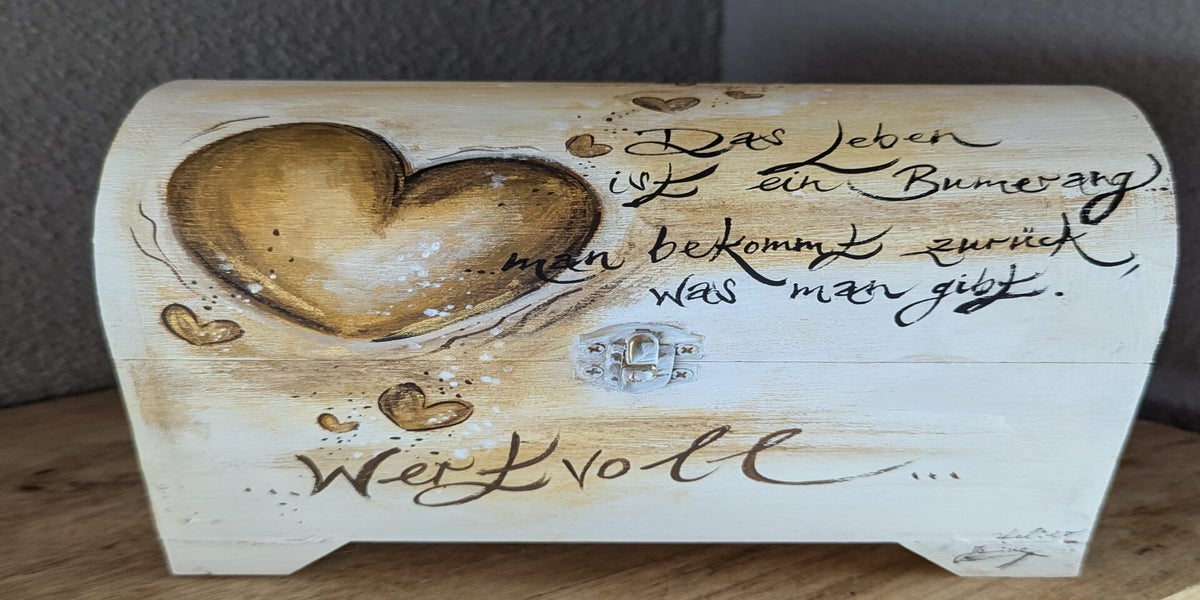 Das Leben
ist ein Bumerang...
...man bekommt zurück,
was man gibt.
...Wertvoll...